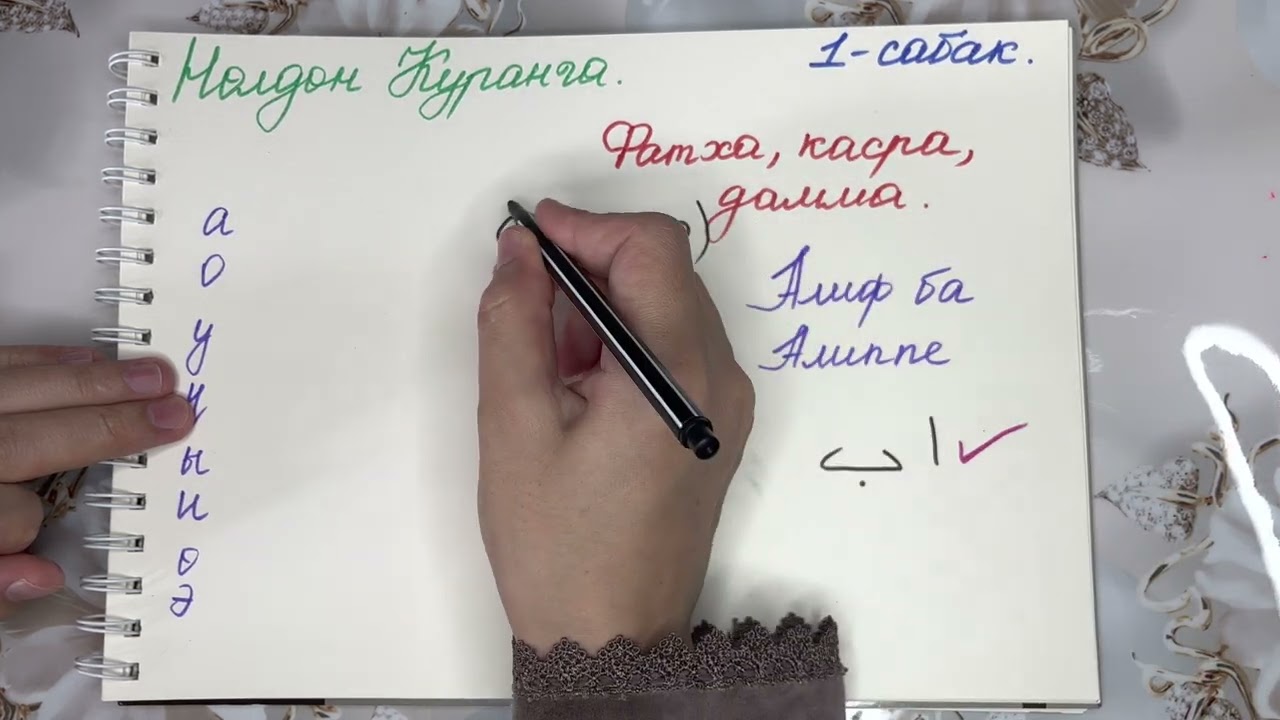 Нолдон Куранга.
1-сабак.
Фатха, касра,
дамма.
а
о
у
ы
и
о
э
Алиф ба
Алиппе
ا ب